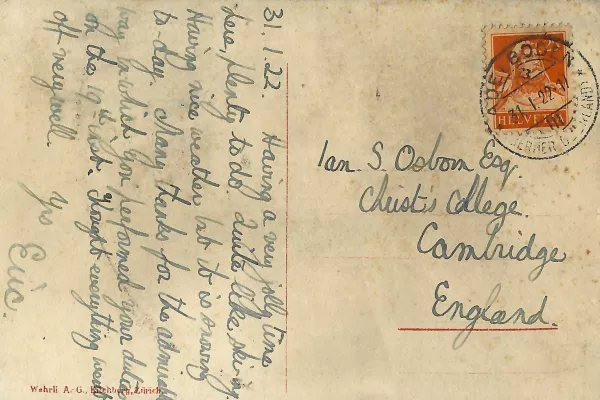 31.1.22. Having a very jolly time
here, plenty to do. Quite like skiing.
Having nice weather but it is snowing
to-day. Many thanks for the admirable
way in which you performed your duties
on the 19th inst. Thought everything went
off very well. Yrs
Eric.
HELVETIA
Ian. S. Osborn Esq.
Christ's College.
Cambridge
England.
Wehrli A.-G., Kilchberg, Zürich.